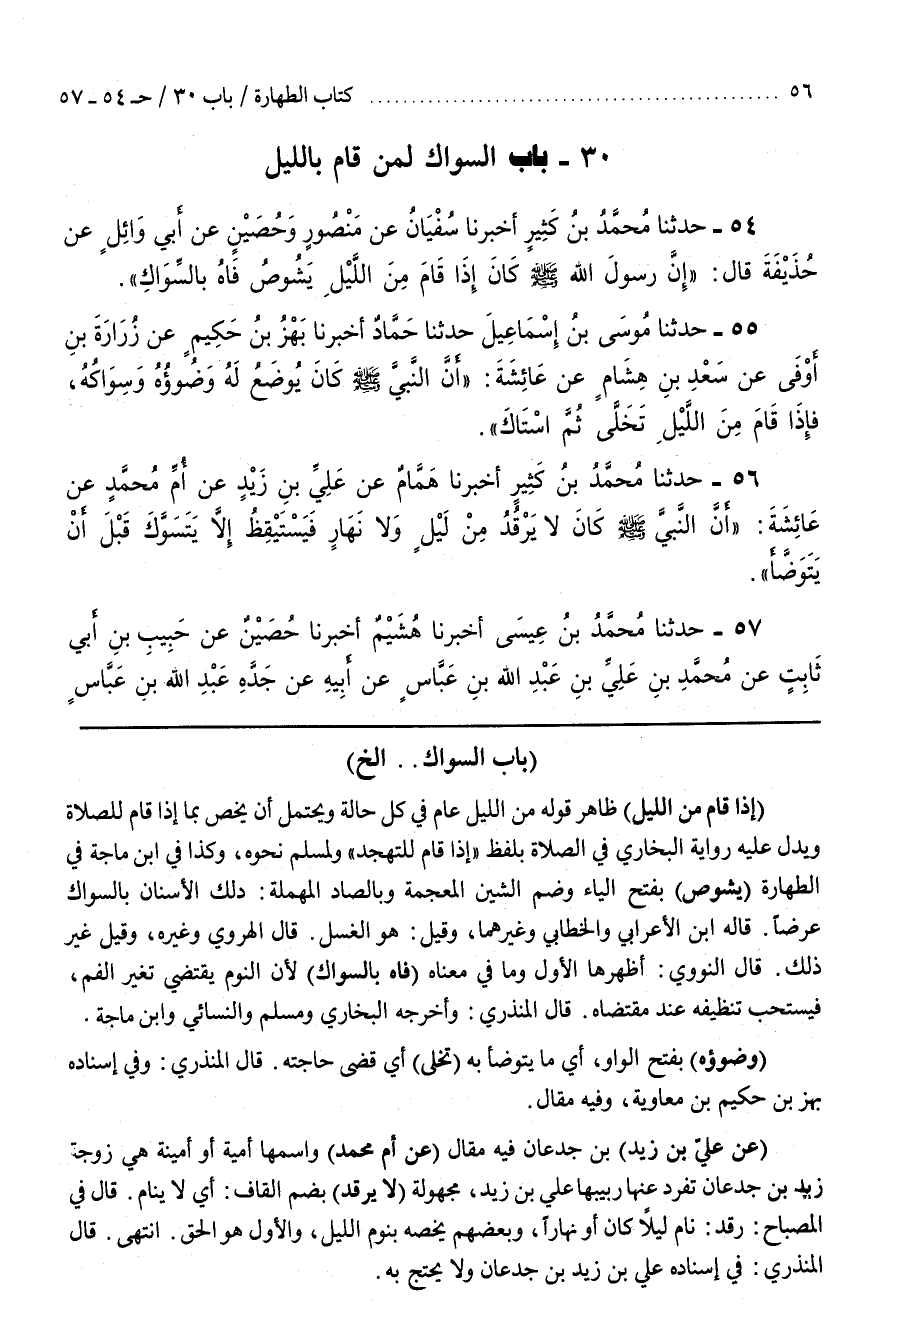 ٥٦ ........................................ كتاب الطهارة / باب ٣٠ / حـ ٥٤ ـ ٥٧
٣٠ ـ باب السواك لمن قام بالليل
٥٤ ـ حدثنا مُحمَّدُ بنُ كَثِيرٍ أخبرنا سُفْيَانُ عن مَنْصُورٍ وَحُصَيْنٍ عن أَبي وَائِلٍ عن
حُذَيْفَةَ قال: «إِنَّ رسولَ الله ﷺ كَانَ إِذَا قَامَ مِنَ اللَّيْلِ يَشُوصُ فَاهُ بالسِّوَاكِ».
٥٥ ـ حدثنا مُوسَى بنُ إِسْمَاعِيلَ حدثنا حَمَّادٌ أخبرنا بَهْزُ بنُ حَكِيمٍ عن زُرَارَةَ بنِ
أَوْفَى عن سَعْدِ بنِ هِشَامٍ عن عَائِشَةَ: «أَنَّ النَّبيَّ ﷺ كَانَ يُوضَعُ لَهُ وَضُوؤُهُ وَسِوَاكُهُ،
فإِذَا قَامَ مِنَ اللَّيْلِ تَخَلَّى ثُمَّ اسْتَاكَ».
٥٦ ـ حدثنا مُحمَّدُ بنُ كَثِيرٍ أخبرنا هَمَّامٌ عن عَلِيِّ بنِ زَيْدٍ عن أُمِّ مُحمَّدٍ عن
عَائِشَةَ: «أَنَّ النَّبيَّ ﷺ كَانَ لا يَرْقُدُ مِنْ لَيْلٍ وَلا نَهَارٍ فَيَسْتَيْقِظُ إِلَّا يَتَسَوَّكَ قَبْلَ أَنْ
يَتَوَضَّأَ».
٥٧ ـ حدثنا مُحمَّدُ بنُ عِيسَى أخبرنا هُشَيْمٌ أخبرنا حُصَيْنٌ عن حَبِيبِ بنِ أَبي
ثَابِتٍ عن مُحمَّدِ بنِ عَلِيِّ بنِ عَبْدِ الله بنِ عَبَّاسٍ عن أَبِيهِ عن جَدِّهِ عَبْدِ الله بنِ عَبَّاسٍ
(باب السواك . . الخ)
(إذا قام من الليل) ظاهر قوله من الليل عام في كل حالة ويحتمل أن يخص بما إذا قام للصلاة
ويدل عليه رواية البخاري في الصلاة بلفظ «إذا قام للتهجد» ولمسلم نحوه، وكذا في ابن ماجة في
الطهارة (يشوص) بفتح الياء وضم الشين المعجمة وبالصاد المهملة: دلك الأسنان بالسواك
عرضاً. قاله ابن الأعرابي والخطابي وغيرهما، وقيل: هو الغسل. قال الهروي وغيره، وقيل غير
ذلك. قال النووي: أظهرها الأول وما في معناه (فاه بالسواك) لأن النوم يقتضي تغير الفم،
فيستحب تنظيفه عند مقتضاه. قال المنذري: وأخرجه البخاري ومسلم والنسائي وابن ماجة.
(وضوؤه) بفتح الواو، أي ما يتوضأ به (تخلى) أي قضى حاجته. قال المنذري: وفي إسناده
بهز بن حكيم بن معاوية، وفيه مقال.
(عن عليّ بن زيد) بن جدعان فيه مقال (عن أم محمد) واسمها أمية أو أمينة هي زوجة
زيد بن جدعان تفرد عنها ربيبها علي بن زيد، مجهولة (لا يرقد) بضم القاف: أي لا ينام. قال في
المصباح: رقد: نام ليلاً كان أو نهاراً، وبعضهم يخصه بنوم الليل، والأول هو الحق. انتهى. قال
المنذري: في إسناده علي بن زيد بن جدعان ولا يحتج به.